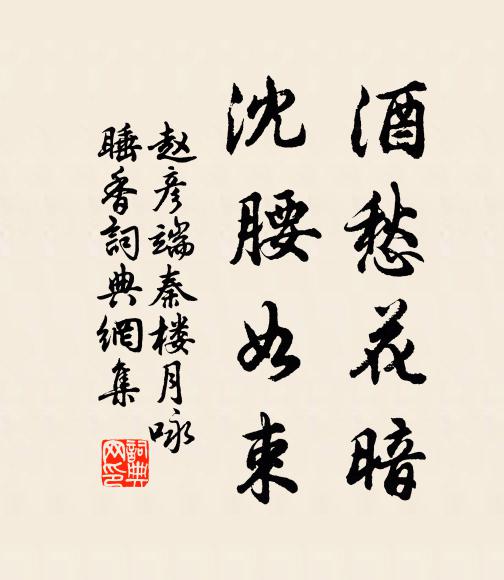 酒愁花暗
沈腰如束
赵彦端秦楼月咏
睡香詞典網集
詞典
网印